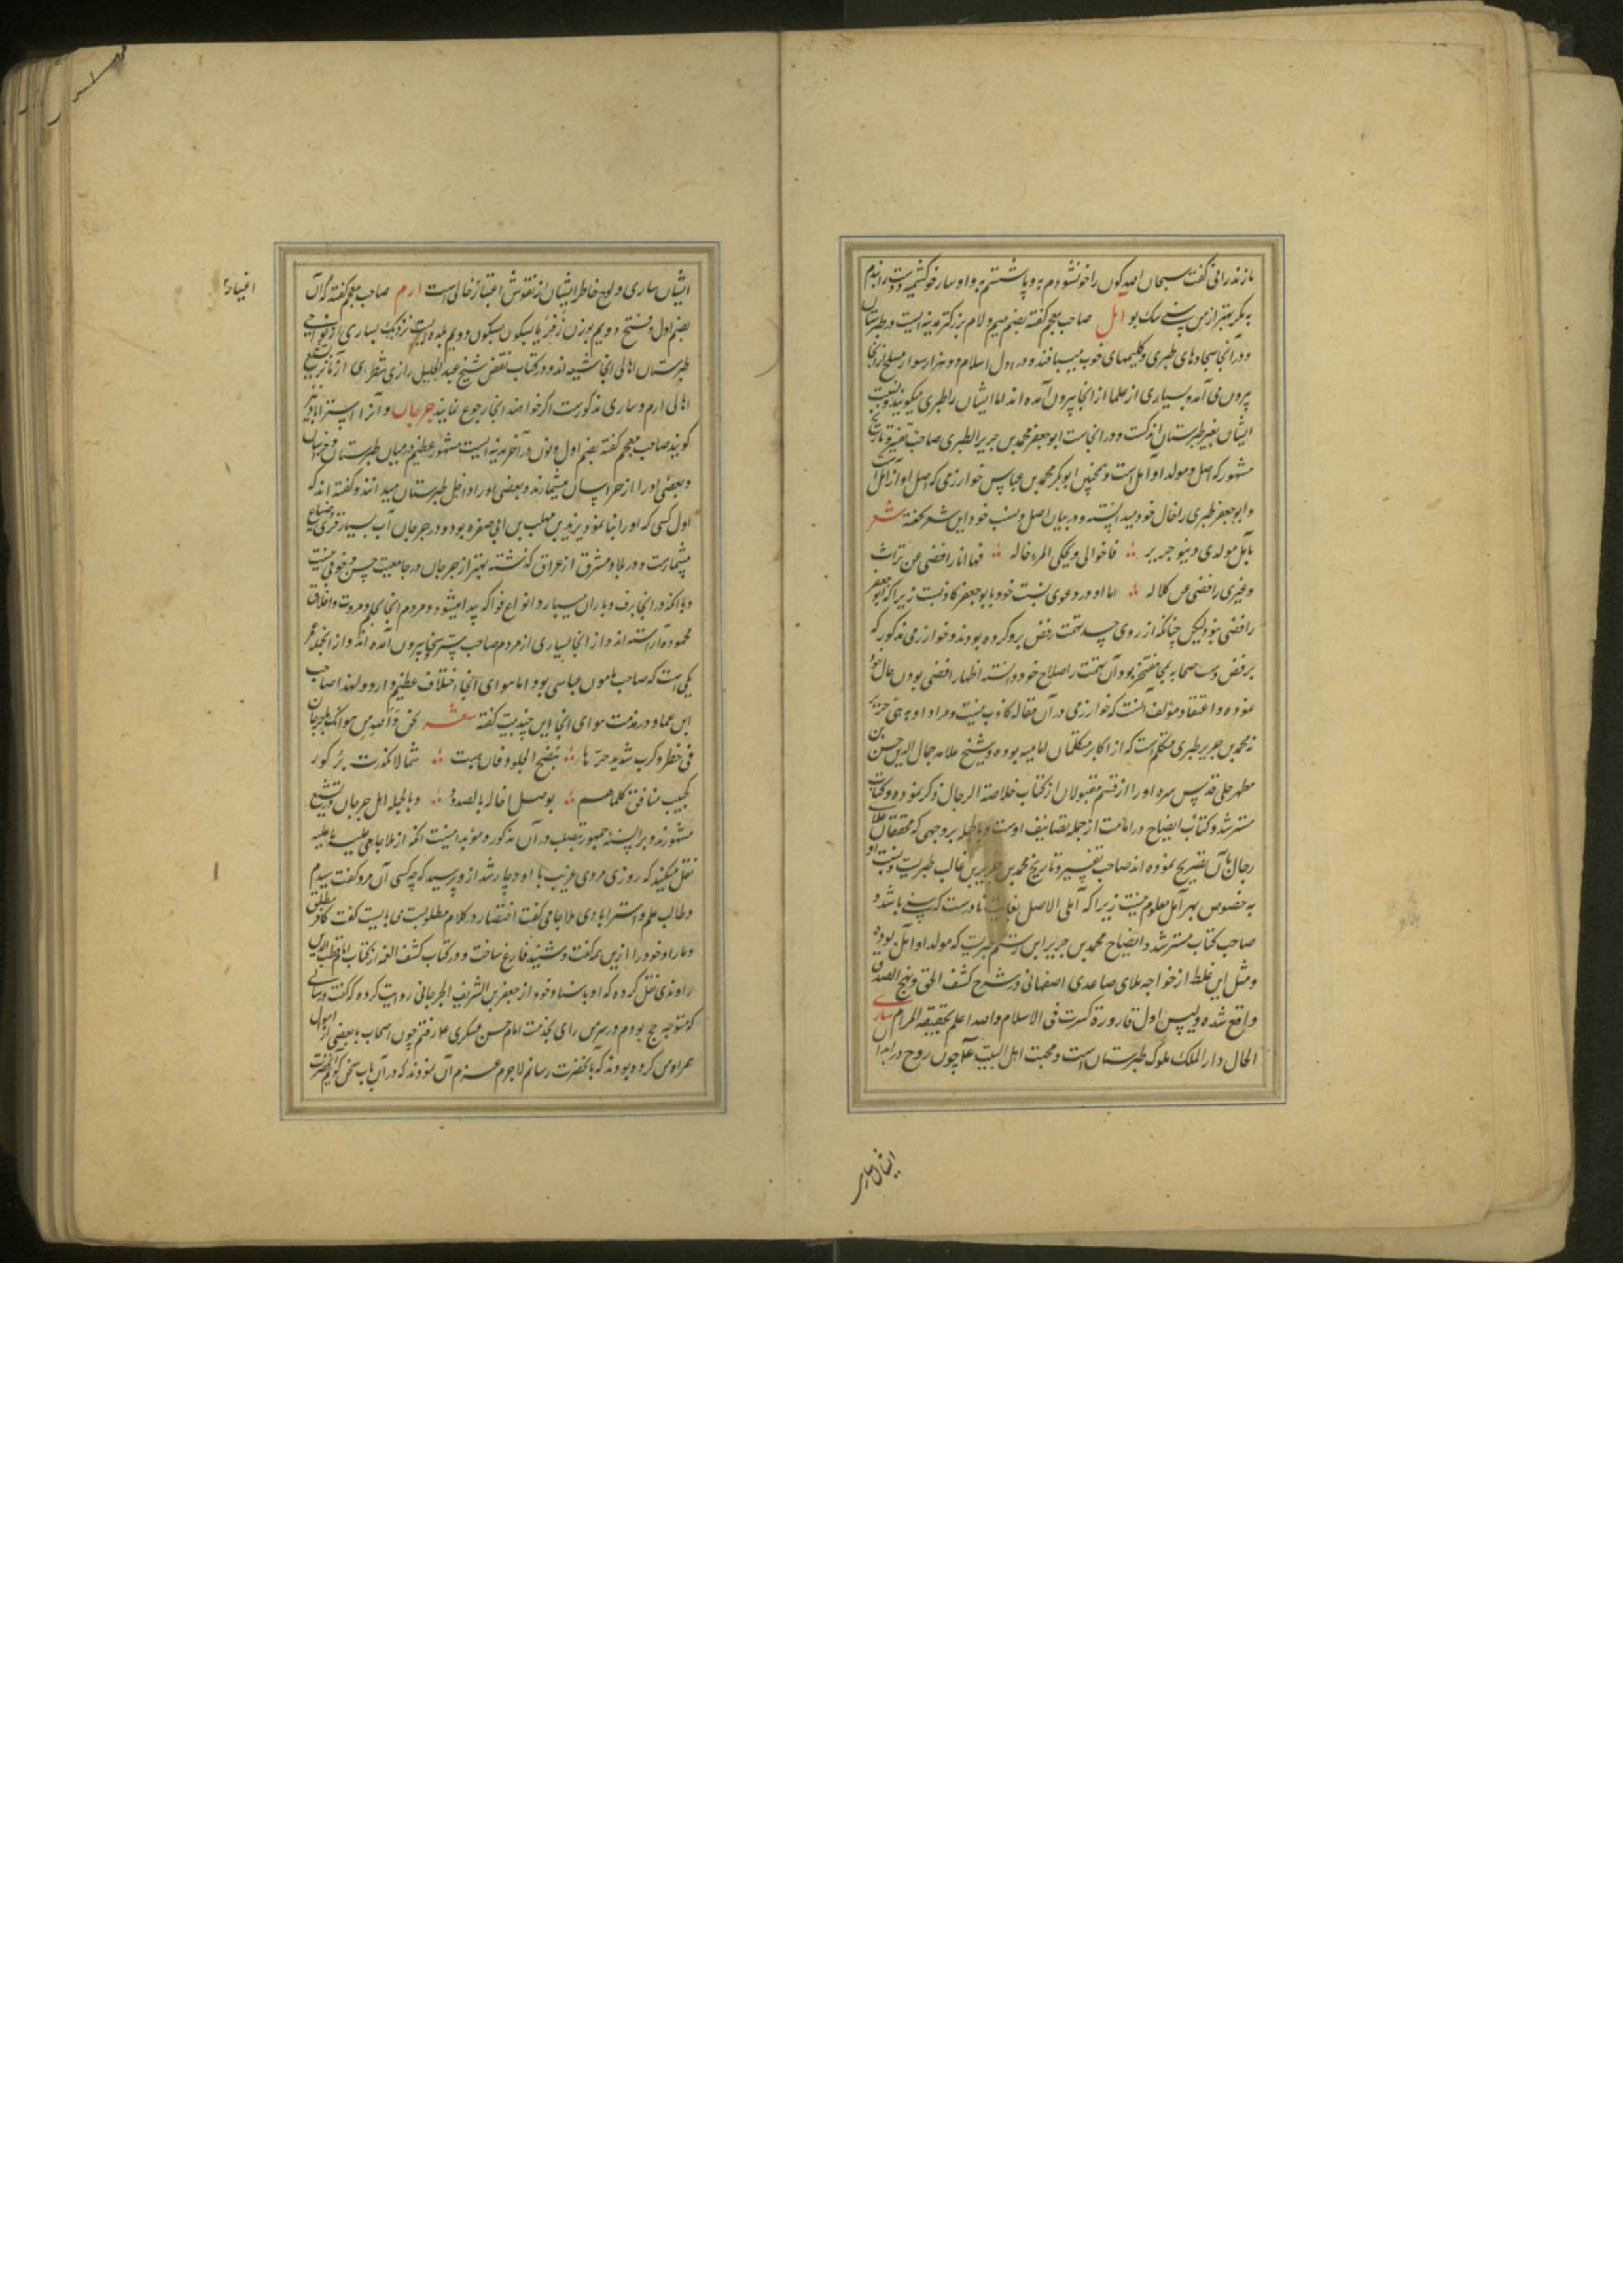 مازندرانی گفت سبحان الله کون را خونشودم به و پا شستم به و او سار خو کشمیه و دست را ندم
به مگر بهتر از من سنی سک بو آمل صاحب معجم گفته بضم میم و لام بزرکتر مدینه ایست در طبرستان
و در آنجا سجادهای طبری و کلیمهای خوب میبافند و در اول اسلام دو هزار سوار مسلح از آنجا
بیرون می آمد و بسیاری از علما از آنجا بیرون آمده اند اما ایشان را طبری میگویند و نسبت
ایشان بغیر طبرستان اندکست و در انجاست ابو جعفر محمد بن جریر الطبری صاحب تفسیر و تاریخ
مشهور که اصل و مولد او آمل است و همچنین ابو بکر محمد بن عباس خوارزمی که اصل او از آمل است
و ابو جعفر طبری را خال خود میدانسته و در بیان اصل و نسب خود این شعر گفته شعر
بآمل مولدی و بنو جریر فاخوالی و یحکی المرء خاله فها انا رافضی عن تراث
و غیری رافضی عن کلاله اما او در دعوی نسبت خود با بو جعفر کاذبست زیرا که ابو جعفر
رافضی نبود لیکن چنانکه از روی حسد تهمت رفض برو کرده بودند و خوارزمی مذکور که
برفض و سب صحابه مفتخر بود آن تهمت را صلاح خود دانسته اظهار رافضی بودن خال خود
نموده و اعتقاد مؤلف آنست که خوارزمی در آن مقاله کاذب نیست و مراد او به بنی جریر
نه محمد بن جریر طبری متکلم است که از اکابر متکلمان امامیه بوده و شیخ علامه جمال الدین حسن بن
مطهر حلی قدس سره او را از قسم مقبولان از کتاب خلاصة الرجال ذکر نموده و کتاب
مسترشد و کتاب ایضاح در امامت از جمله تصانیف اوست و بالجمله بروجهی که محققان علمای
رجال بآن تصریح نموده اند صاحب تفسیر و تاریخ محمد بن جریر بن غالب طبریست و نسبت او
به خصوص بهر آمل معلوم نیست زیرا که آملی الاصل بغایت نادرست که سنی باشد و
صاحب کتاب مسترشد و ایضاح محمد بن جریر ابن رستم طبریست که مولد او آمل بوده
و مثل این غلط از خواجه ملای صاعدی اصفهانی در شرح کشف الحق و نهج الصدق
واقع شده و لیس اول قارورة کسرت فی الاسلام والله اعلم بحقیقه المرام ساری
الحال دار الملک ملوک طبرستان است و محبت اهل البیت ع چون روح در ابدان
ایشان ساری
ایشان ساری و لوح خاطر ایشان از نقوش اعتبار خالی است ارم صاحب معجم گفته که آن
بضم اول و فتح دویم بوزن زفر یا بسکون دویم بلده ایست نزدیک بساری از نواحی
طبرستان اهالی انجا شیعه اند و در کتاب نقض شیخ عبد الجلیل رازی شطری از مآثر تشیع
اهالی ارم و ساری مذکورست اگر خواهند انجا رجوع نمایند جرجان و آنرا استراباد نیز
گویند صاحب معجم گفته بضم اول و نون در آخر مدینه ایست مشهور عظیم در میان طبرستان و خراسان
و بعضی او را از خراسان میشمارند و بعضی او را داخل طبرستان میدانند و گفته اند که
اول کسی که او را بنا نمود یزید بن مهلب بن ابی صفره بود و در جرجان آب بسیار و قری و ضیاع
بیشمارست و در بلاد مشرق از عراق گذشته بهتر از جرجان در جامعیت حسن و خوبی نیست
و با آنکه در انجا برف و باران میبارد انواع فواکه پیدا میشود و مردم انجا بمروت و اخلاق
محموده آراسته اند و از انجا بسیاری از مردم صاحب سخا بیرون آمده اند و از انجمله عمر
یکی است که صاحب مامون عباسی بود اما هوای انجا اختلاف عظیم دارد و لهذا صاحب
ابن عماد در مذمت هوای انجا این چند بیت گفته شعر نحن والله من هوائک یا جرجان
فی خطر و کرب شدید حرّ ها ینضج الجلود فان هبت شمالا تکدرت برکود
کحبیب منافق کلما هم بوصل اخاله بالصدود و بالجمله اهل جرجان در تشیع
مشهورند و بر السنه جمهور تصلب در آن مذکور و مؤید اینست آنکه از ملا جامی علیه ما علیه
نقل میکنند که روزی مردی غریب با او دچار شد ازو پرسید که چه کسی آن مرد گفت سیدم
و طالب علم و استرابادی ملا جامی گفت اختصار در کلام مطلوبست می بایست گفت کافر مطلق
و ما را و خود را ازین همه گفت و شنید فارغ ساخت و در کتاب کشف الغمه از کتاب امام قطب الدین
راوندی نقل کرده که او باسناد خود از جعفر بن الشریف الجرجانی روایت کرده که گفت وقتی
که متوجه حج بودم در سر من رای بخدمت امام حسن عسکری ع رفتم چون اصحاب ما بعضی از اموال
همراه من کرده بودند که بآنحضرت رسانم لاجرم عزم آن نمودند که در آن باب سخن کویم آنحضرت